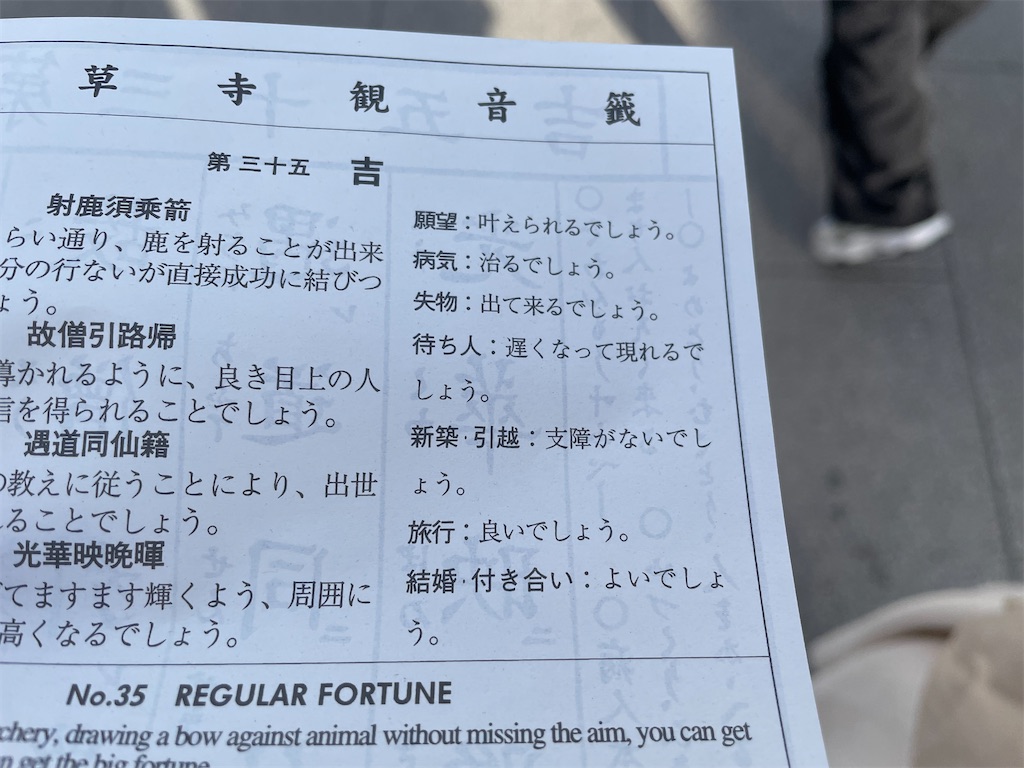 草寺観音籤
第三十五 吉
射鹿須乗箭
らい通り、鹿を射ることが出来
分の行ないが直接成功に結びつ
ょう。
故僧引路帰
導かれるように、良き目上の人
言を得られることでしょう。
遇道同仙籍
の教えに従うことにより、出世
れることでしょう。
光華映晩暉
てますます輝くよう、周囲に
高くなるでしょう。
願望：叶えられるでしょう。
病気：治るでしょう。
失物：出て来るでしょう。
待ち人：遅くなって現れるで
しょう。
新築・引越：支障がないでし
ょう。
旅行：良いでしょう。
結婚・付き合い：よいでしょ
う。
No.35 REGULAR FORTUNE
chery, drawing a bow against animal without missing the aim, you can get
n get the big fortune